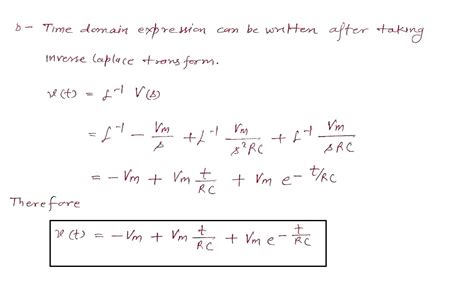 b - Time domain expression can be written after taking
inverse laplace transform.
v(t) = L⁻¹ V(s)
= L⁻¹ - Vm/s + L⁻¹ Vm/s²RC + L⁻¹ Vm/sRC
= - Vm + Vm t/RC + Vm e - t/RC
Therefore
v(t) = - Vm + Vm t/RC + Vm e - t/RC